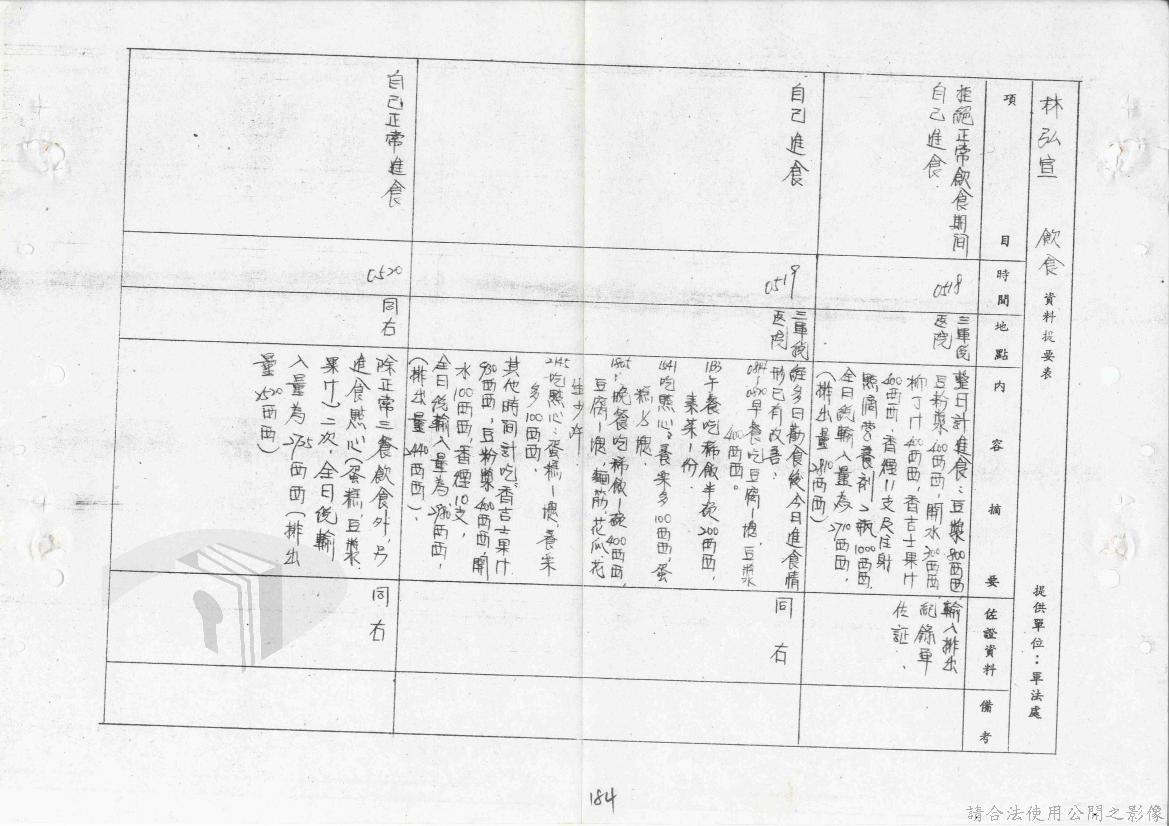 林弘宣　飲食資料提要表
提供單位：軍法處
項目
時間
地點
內容摘要
佐證資料
備考
拒絕正常飲食期間
自己進食．
0518
三軍總
医院
整日計進食：豆漿800西西，
豆粉漿400西西，開水300西西，
柳丁汁400西西，香吉士果汁
400西西，香煙11支及注射
點滴營養劑2瓶1000西西．
全日總輸入量為2710西西，
（排出量2810西西）
輸入排出
紀錄單
佐証．
自己進食
0519
三軍總
医院
經多日勸食後，今日進食情
形已有改善：
早餐吃豆腐1塊，豆漿
400西西。
午餐吃稀飯半碗200西西，
素菜1份．
1541吃點心：養樂多100西西蛋
糕½塊．
1805：晚餐吃稀飯1碗400西西，
豆腐1塊，麵筋，花瓜，花
生少許
2145吃點心：蛋糕1塊，養樂
多100西西
其他時間計吃：香吉士果汁
980西西，豆粉漿400西西，開
水100西西，香煙10支，
全日總輸入量為2780西西，
（排出量2440西西）．
同右
自己正常進食
0520
同右
除正常三餐飲食外，另
進食點心（蛋糕，豆漿，
果汁）二次，全日總輸
入量為2765西西（排出
量2520西西）
同右
184
請合法使用公開之影像